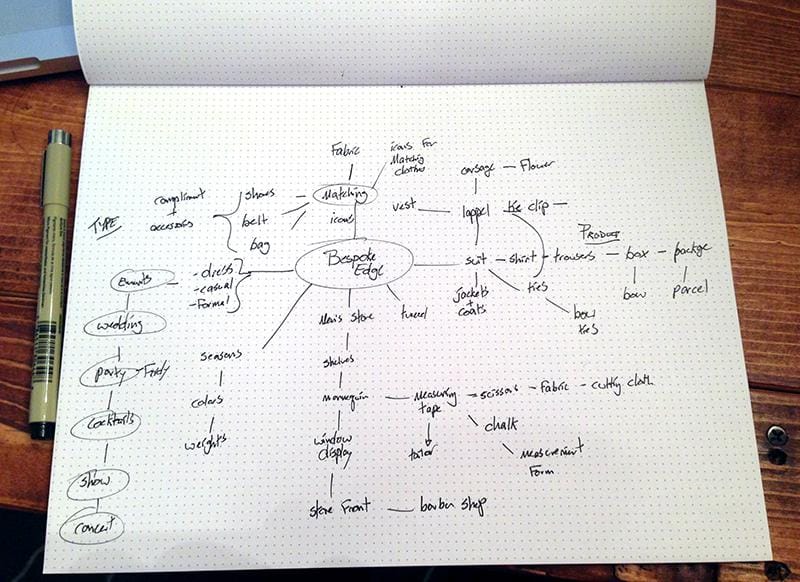 Fabric
icons For
Matching
clothes
corsage - Flower
compliment
+
accessories
TYPE
shoes
belt
bag
Matching
icons
vest
lappel
tie clip
PRODUCT
Bespoke
Edge
suit - shirt - trousers - box - package
bow
parcel
jackets
+
coats
ties
bow
ties
Events
- dress
- casual
- Formal
wedding
party
cocktails
show
concert
seasons
colors
weights
Men's store
tunnel
shelves
mannequin
window
display
store Front - barber shop
measuring
tape
tailor
scissors - Fabric - cutting cloth
chalk
measurement
Form